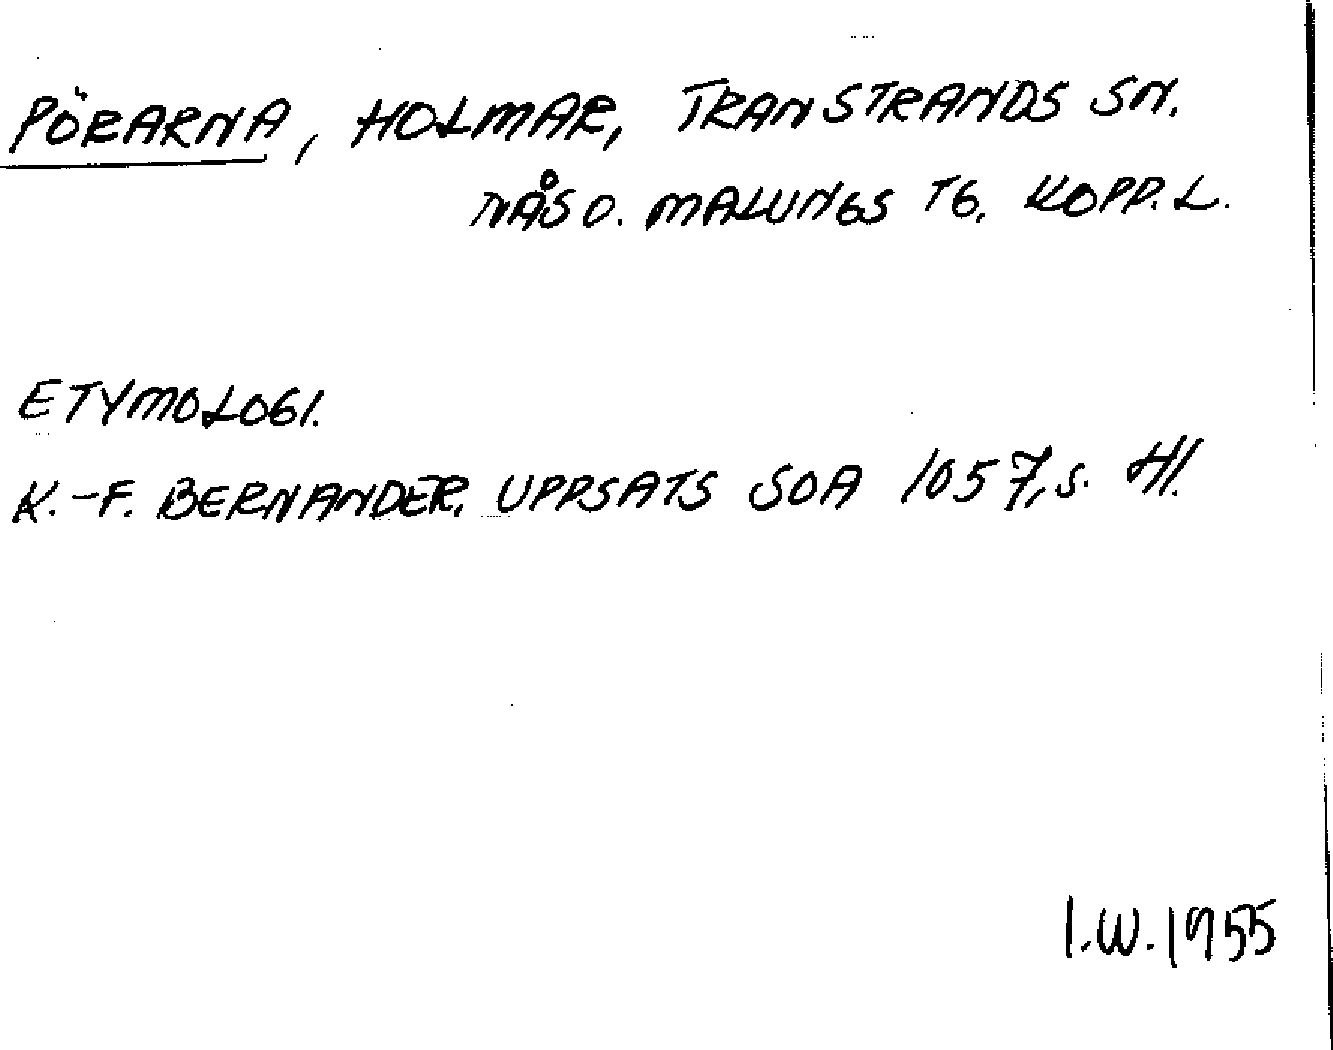 PÖRARNA, HOLMAR, TRANSTRANDS SN.
NÅS O. MALUNGS TG. KOPP. L.
ETYMOLOGI.
K.-F. BERNANDER, UPPSATS SOA 1057, s. 41.
I.W. 1955